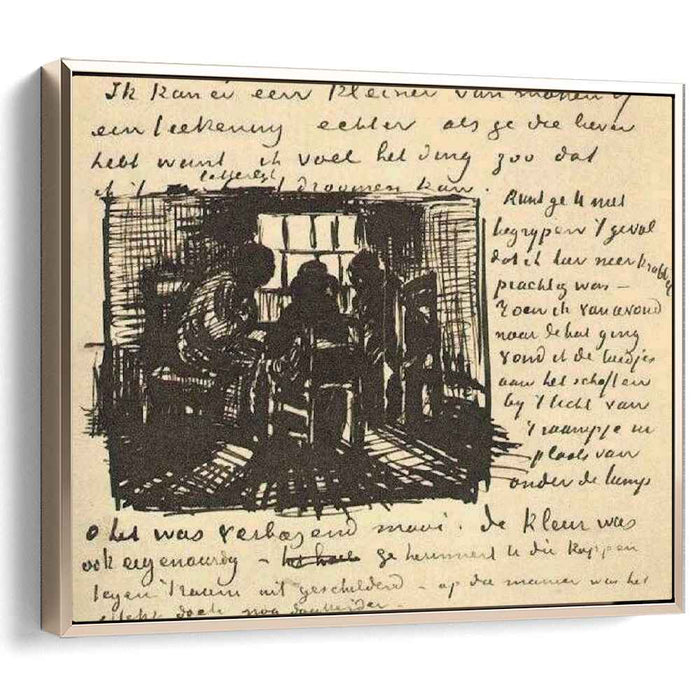 Ik kan er een kleiner van maken of
een teekening echter als ge die liever
hebt want ik voel het ding zoo dat
ik 't letterlijk droomen kan.
Kunt ge U niet
begrypen 't geval
dat ik hier neer krabbel
prachtig was —
Toen ik van avond
naar de hut ging
vond ik de luidjes
aan het schoften
by 't licht van
't raampje in
plaats van
onder de lamp
o het was verbazend mooi. de kleur was
ook eigenaardig — ge herinnert U die koppen
tegen 't raam uit geschilderd — op die manier was het
effekt doch nog donkerder.